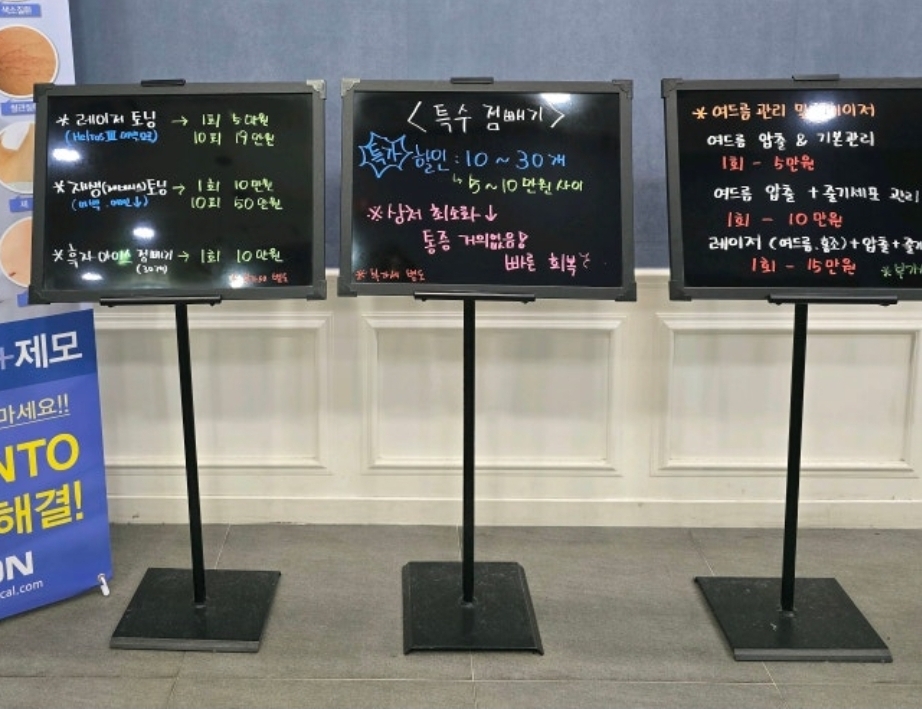 색소질환
+제모
마세요!!
NTO
해결!
ON
cal.com
* 레이저 토닝 → 1회 5만원
(Helios III 미백토닝)
10회 19만원
* 재생(제네시스)토닝 → 1회 10만원
10회 50만원
* 흑자 아이스 점빼기 → 1회 10만원
(30개)
별도
< 특수 점빼기 >
특가 할인 : 10 ~ 30개
↳ 5 ~ 10만원 사이
※ 상처 최소화 ↓
통증 거의없음!
빠른 회복
※ 부가세 별도
* 여드름 관리 및 레이저
여드름 압출 & 기본관리
1회 - 5만원
여드름 압출 + 줄기세포 관리
1회 - 10만원
레이저 (여드름, 홍조) + 압출 + 줄기
1회 - 15만원
※부가